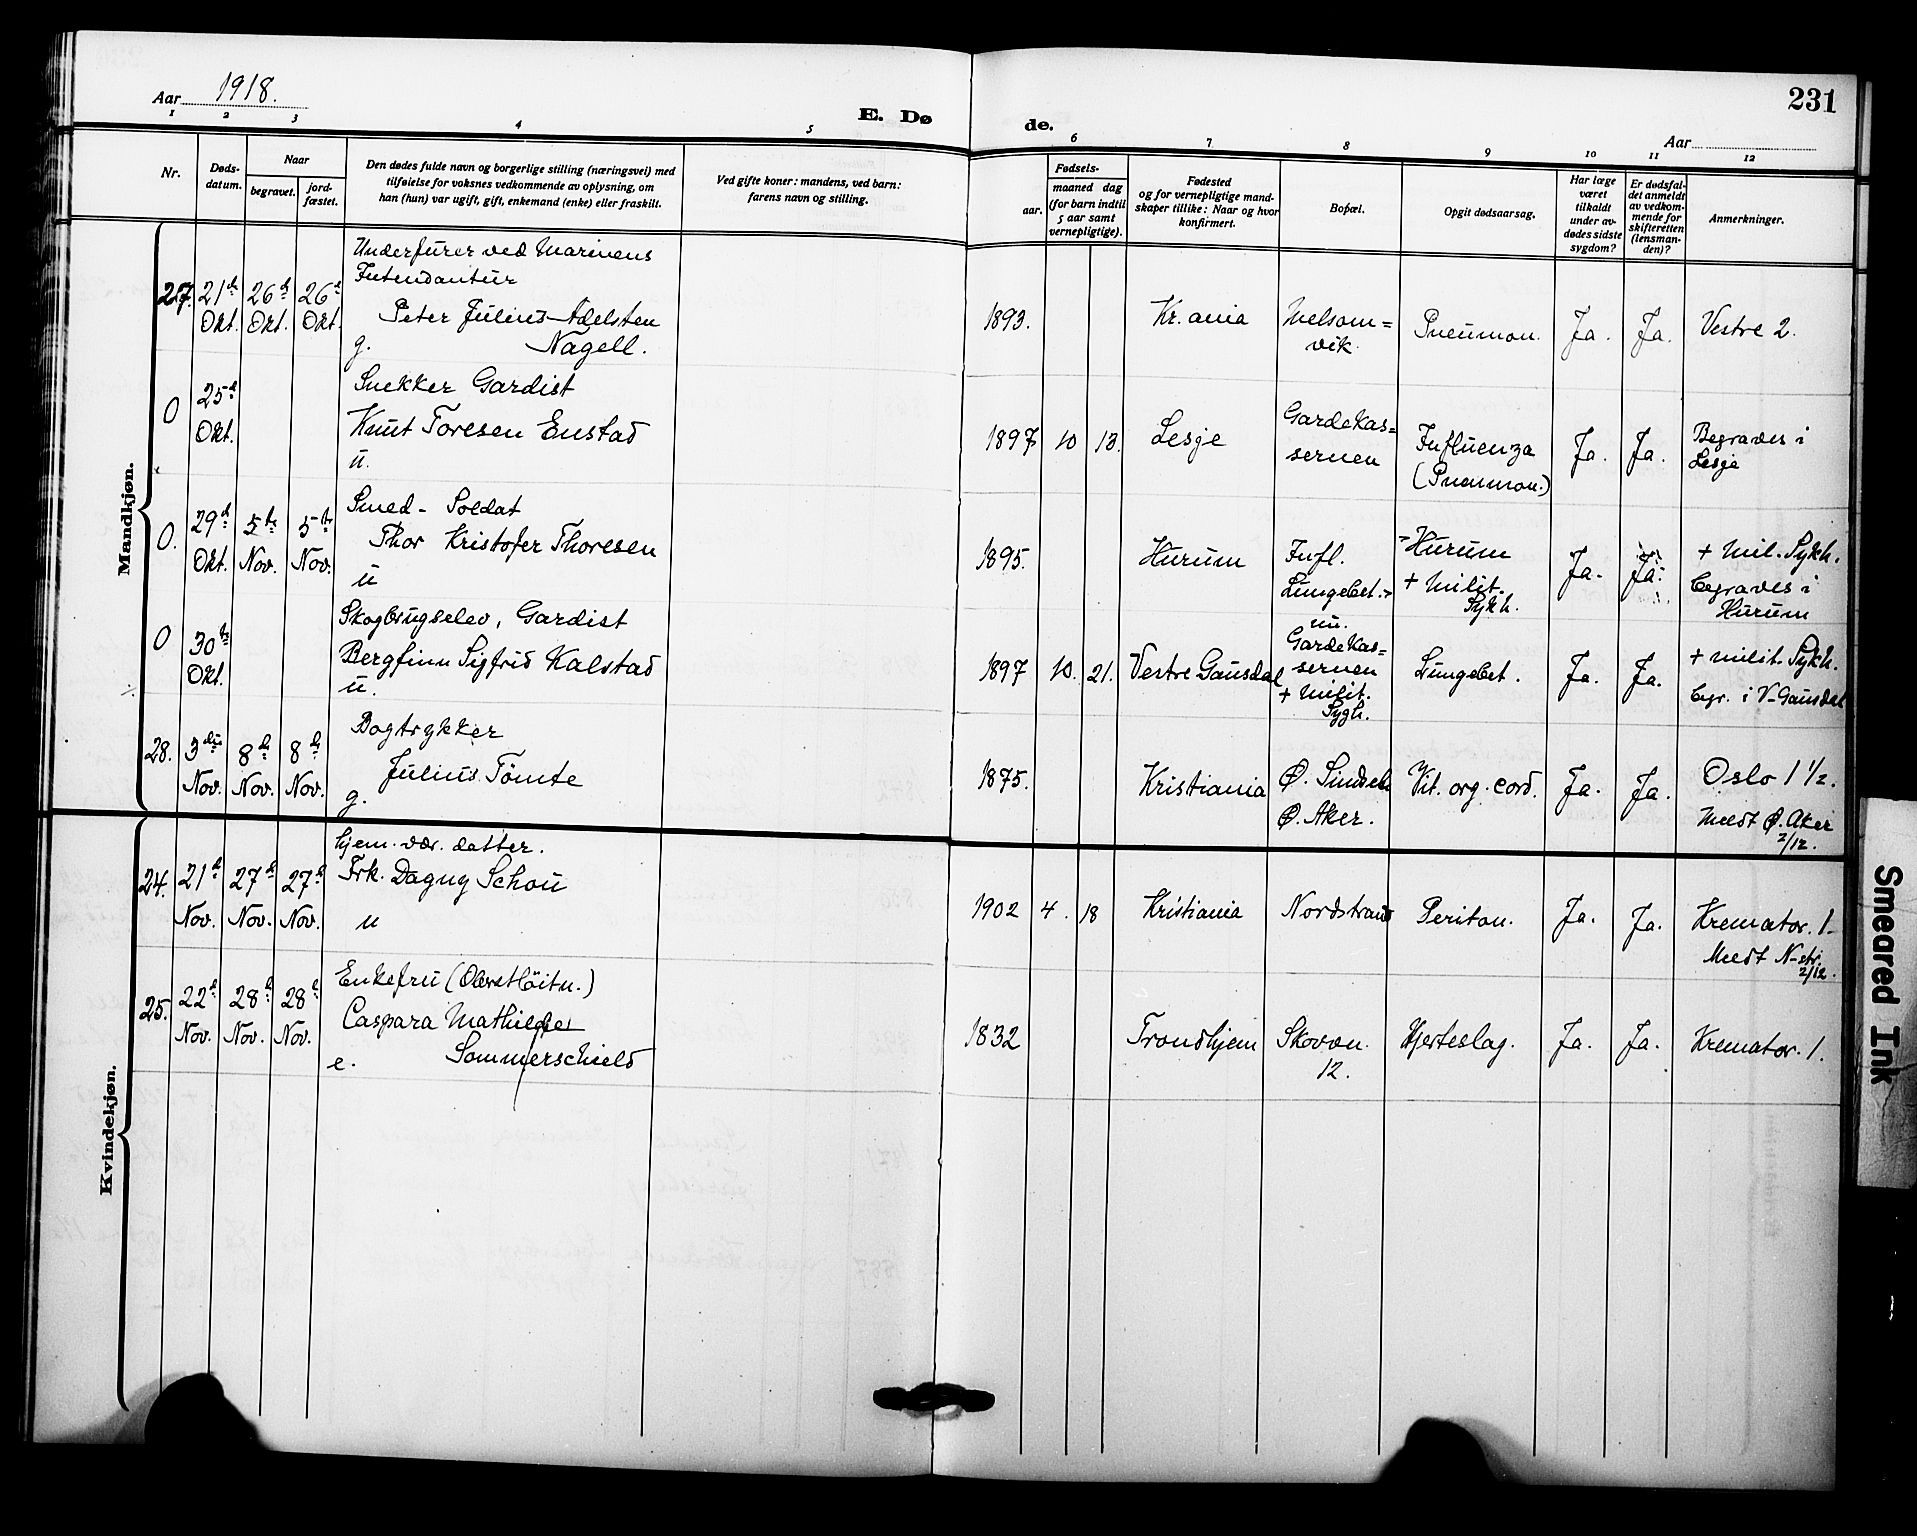 231
Aar 1918.
E. Dø
de.
Aar
1 2 3 4 5 6 7 8 9 10 11 12
Nr.
Døds-
datum.
Naar
begravet.
jord-
fæstet.
Den dødes fulde navn og borgerlige stilling (næringsvei) med
tilføielse for voksnes vedkommende av oplysning, om
han (hun) var ugift, gift, enkemand (enke) eller fraskilt.
Ved gifte koner: mandens, ved barn:
farens navn og stilling.
Fødsels-
aar.
maaned dag
(for barn indtil
5 aar samt
vernepligtige).
Fødested
og for vernepligtige mand-
skaper tillike: Naar og hvor
konfirmert.
Bopæl.
Opgit dødsaarsag.
Har læge
været
tilkaldt
under av-
dødes sidste
sygdom?
Er dødsfal-
det anmeldt
av vedkom-
mende for
skifteretten
(lensman-
den)?
Anmerkninger.
Mandkjøn.
Underfurer ved Marinens
Intendantur
27. 21d 26d 26d
Okt. Okt. Okt.
Peter Julius Adelsten
g. Nagell.
1893. Kr.ania Melsom=
vik
Pneumon. Ja. Ja. Vestre 2.
Snekker Gardist
0 25d
Okt.
Knut Toresen Enstad
u.
1897 10 13. Lesje Gardekas=
sernen
Influenza
(Pneumon.)
Ja. Ja. Begraves i
Lesje
Smed - Soldat
0. 29d 5te 5te
Okt. Nov. Nov.
Thor Kristofer Thoresen
u
1895. Hurum Infl.
Lungebet.
Hurum
+ Milit.
Sykh.
Ja. Ja. + Mil. Sykh.
Begraves i
Hurum
Skogbrugselev, Gardist
0 30te
Okt.
Bergfinn Sigfrid Kalstad
u.
1897 10. 21. Vestre Gausdal
Gardekas=
sernen
+ Milit.
Sygh.
Lungebet. Ja. Ja. + Milit. Sykh.
Begr. i V-Gausdal
Bogtrykker
28. 3die 8d 8d
Nov. Nov. Nov.
Julius Tömte
g.
1875. Kristiania Ø. Sindsela
Ø. Aker.
Vit. org. cord. Ja. Ja. Oslo 1 1/2.
Meldt Ø. Aker
2/12.
Kvindekjøn.
hjem. vær. datter.
24. 21d 27d 27d
Nov. Nov. Nov.
Frk. Dagny Schou
u
1902 4. 18 Kristiania Nordstrand Periton. Ja. Ja. Kremator. 1
Meldt N-str.
2/12.
Enkefru (Oberstlöitn.)
25. 22d 28d 28d
Nov. Nov. Nov.
Caspara Mathilde
e. Sommerschield
1832 Trondhjem Skovvn.
12.
Hjerteslag. Ja. Ja. Kremator. 1.
Smeared Ink